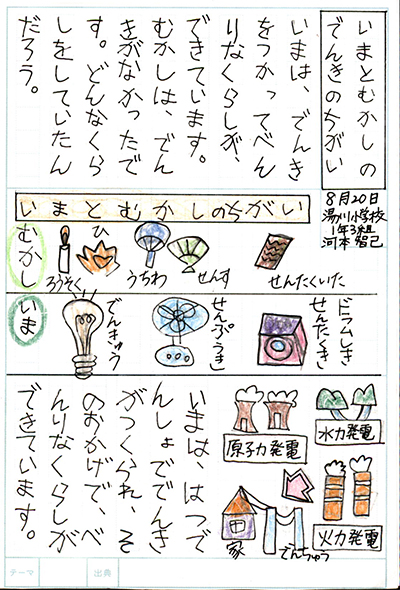 いまとむかしの
でんきのちがい
いまは、でんき
をつかってべん
りなくらしが、
できています。
むかしは、でん
きがなかったで
す。どんなくら
しをしていたん
だろう。
8月20日
湯川小学校
1年3組
河本智己
いまとむかしのちがい
むかし
ろうそく
ひ
うちわ
せんす
せんたくいた
いま
でんきゅう
せんぷうき
ドラムしき
せんたくき
いまは、はつで
んしょででんき
がつくられ、そ
のおかげで、べ
んりなくらしが
できています。
原子力発電
水力発電
火力発電
家
でんちゅう
テーマ
出典